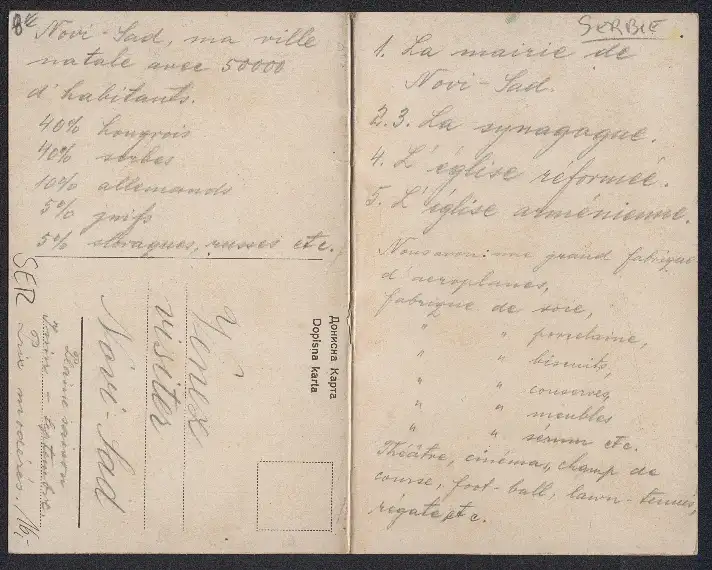 8e
Novi-Sad, ma ville
natale avec 50000
d'habitants.
40% hongrois
40% serbes
10% allemands
5% juifs
5% slovaques, russes etc.
SERBIE
1. La mairie de
Novi-Sad.
2.3. La synagogue.
4. L'église réformée.
5. L'église arménienne.
Nous avons une grand fabrique
d'aeroplanes,
fabrique de soie,
" " porcelaine,
" " biscuits,
" " conserves,
" " meubles
" " sérum etc.
Théâtre, cinéma, champ de
course, foot-ball, lawn-tennis,
régate, etc.
Дописна Карта
Dopisna karta
Venez
visiter
Novi-Sad
Pleine saison
septembre.
SER
modérés.